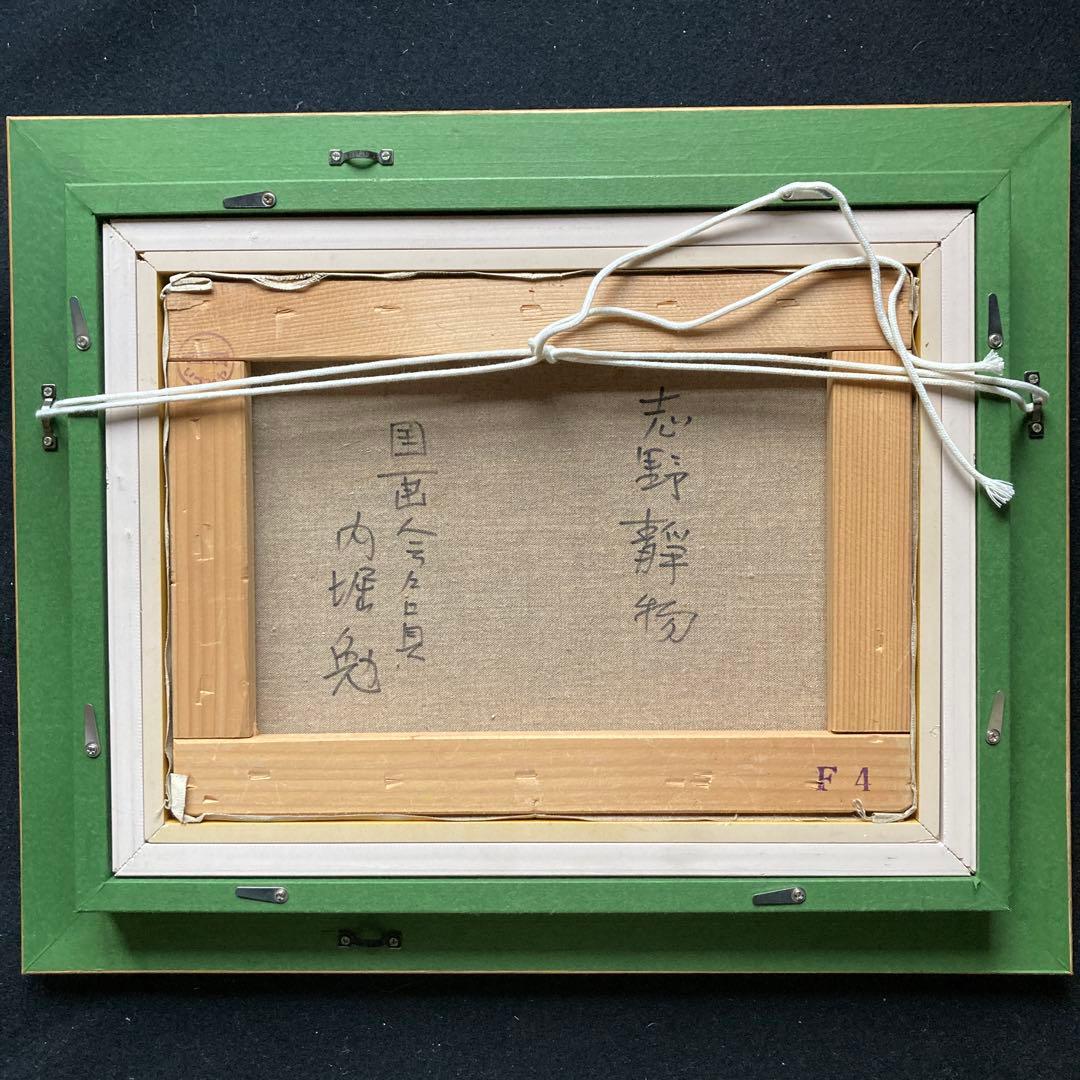 志野静物
国画会々員
内堀勉
F 4